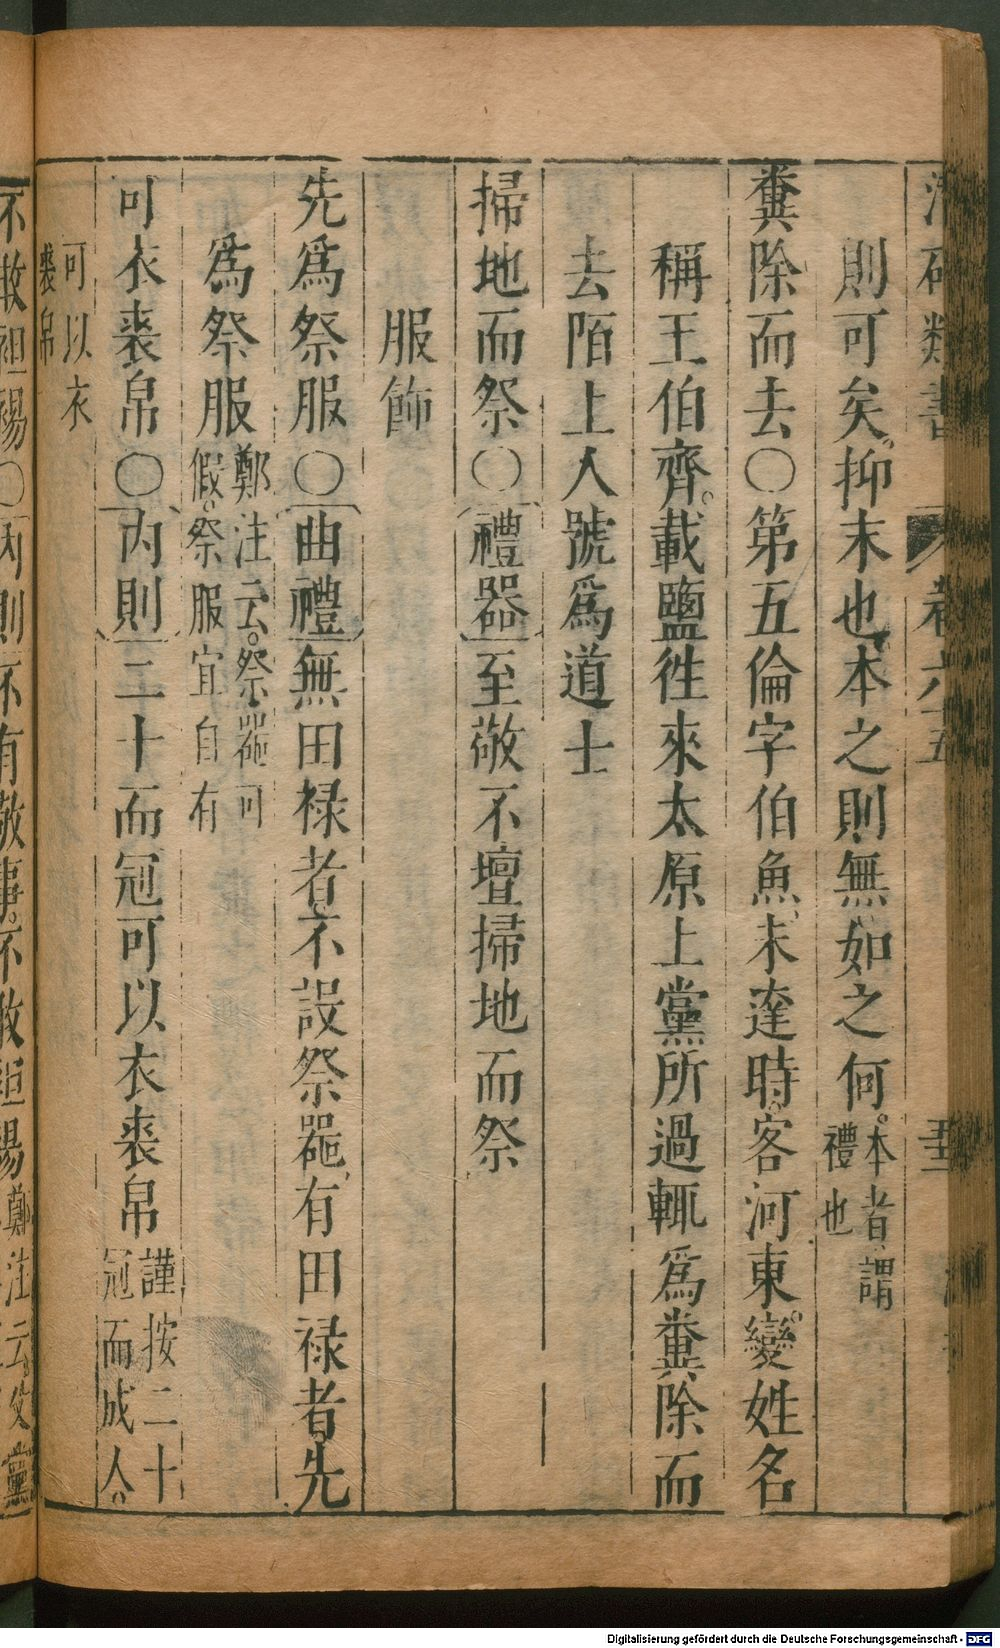 則可矣抑末也本之則無如之何本者謂禮也
糞除而去〇第五倫字伯魚未達時客河東變姓名
稱王伯齊載鹽徃來太原上黨所過輒爲糞除而
去陌上人號爲道士
掃地而祭〇禮器至敬不壇掃地而祭
服飾
先爲祭服〇曲禮無田禄者不設祭器有田禄者先
爲祭服鄭注云祭器可假祭服宜自有
可衣裘帛〇内則二十而冠可以衣裘帛謹按二十冠而成人
可以衣裘帛
不敢袒裼〇内則不有敬事不敢袒裼鄭注云父黨
Digitalisierung gefördert durch die Deutsche Forschungsgemeinschaft - DFG